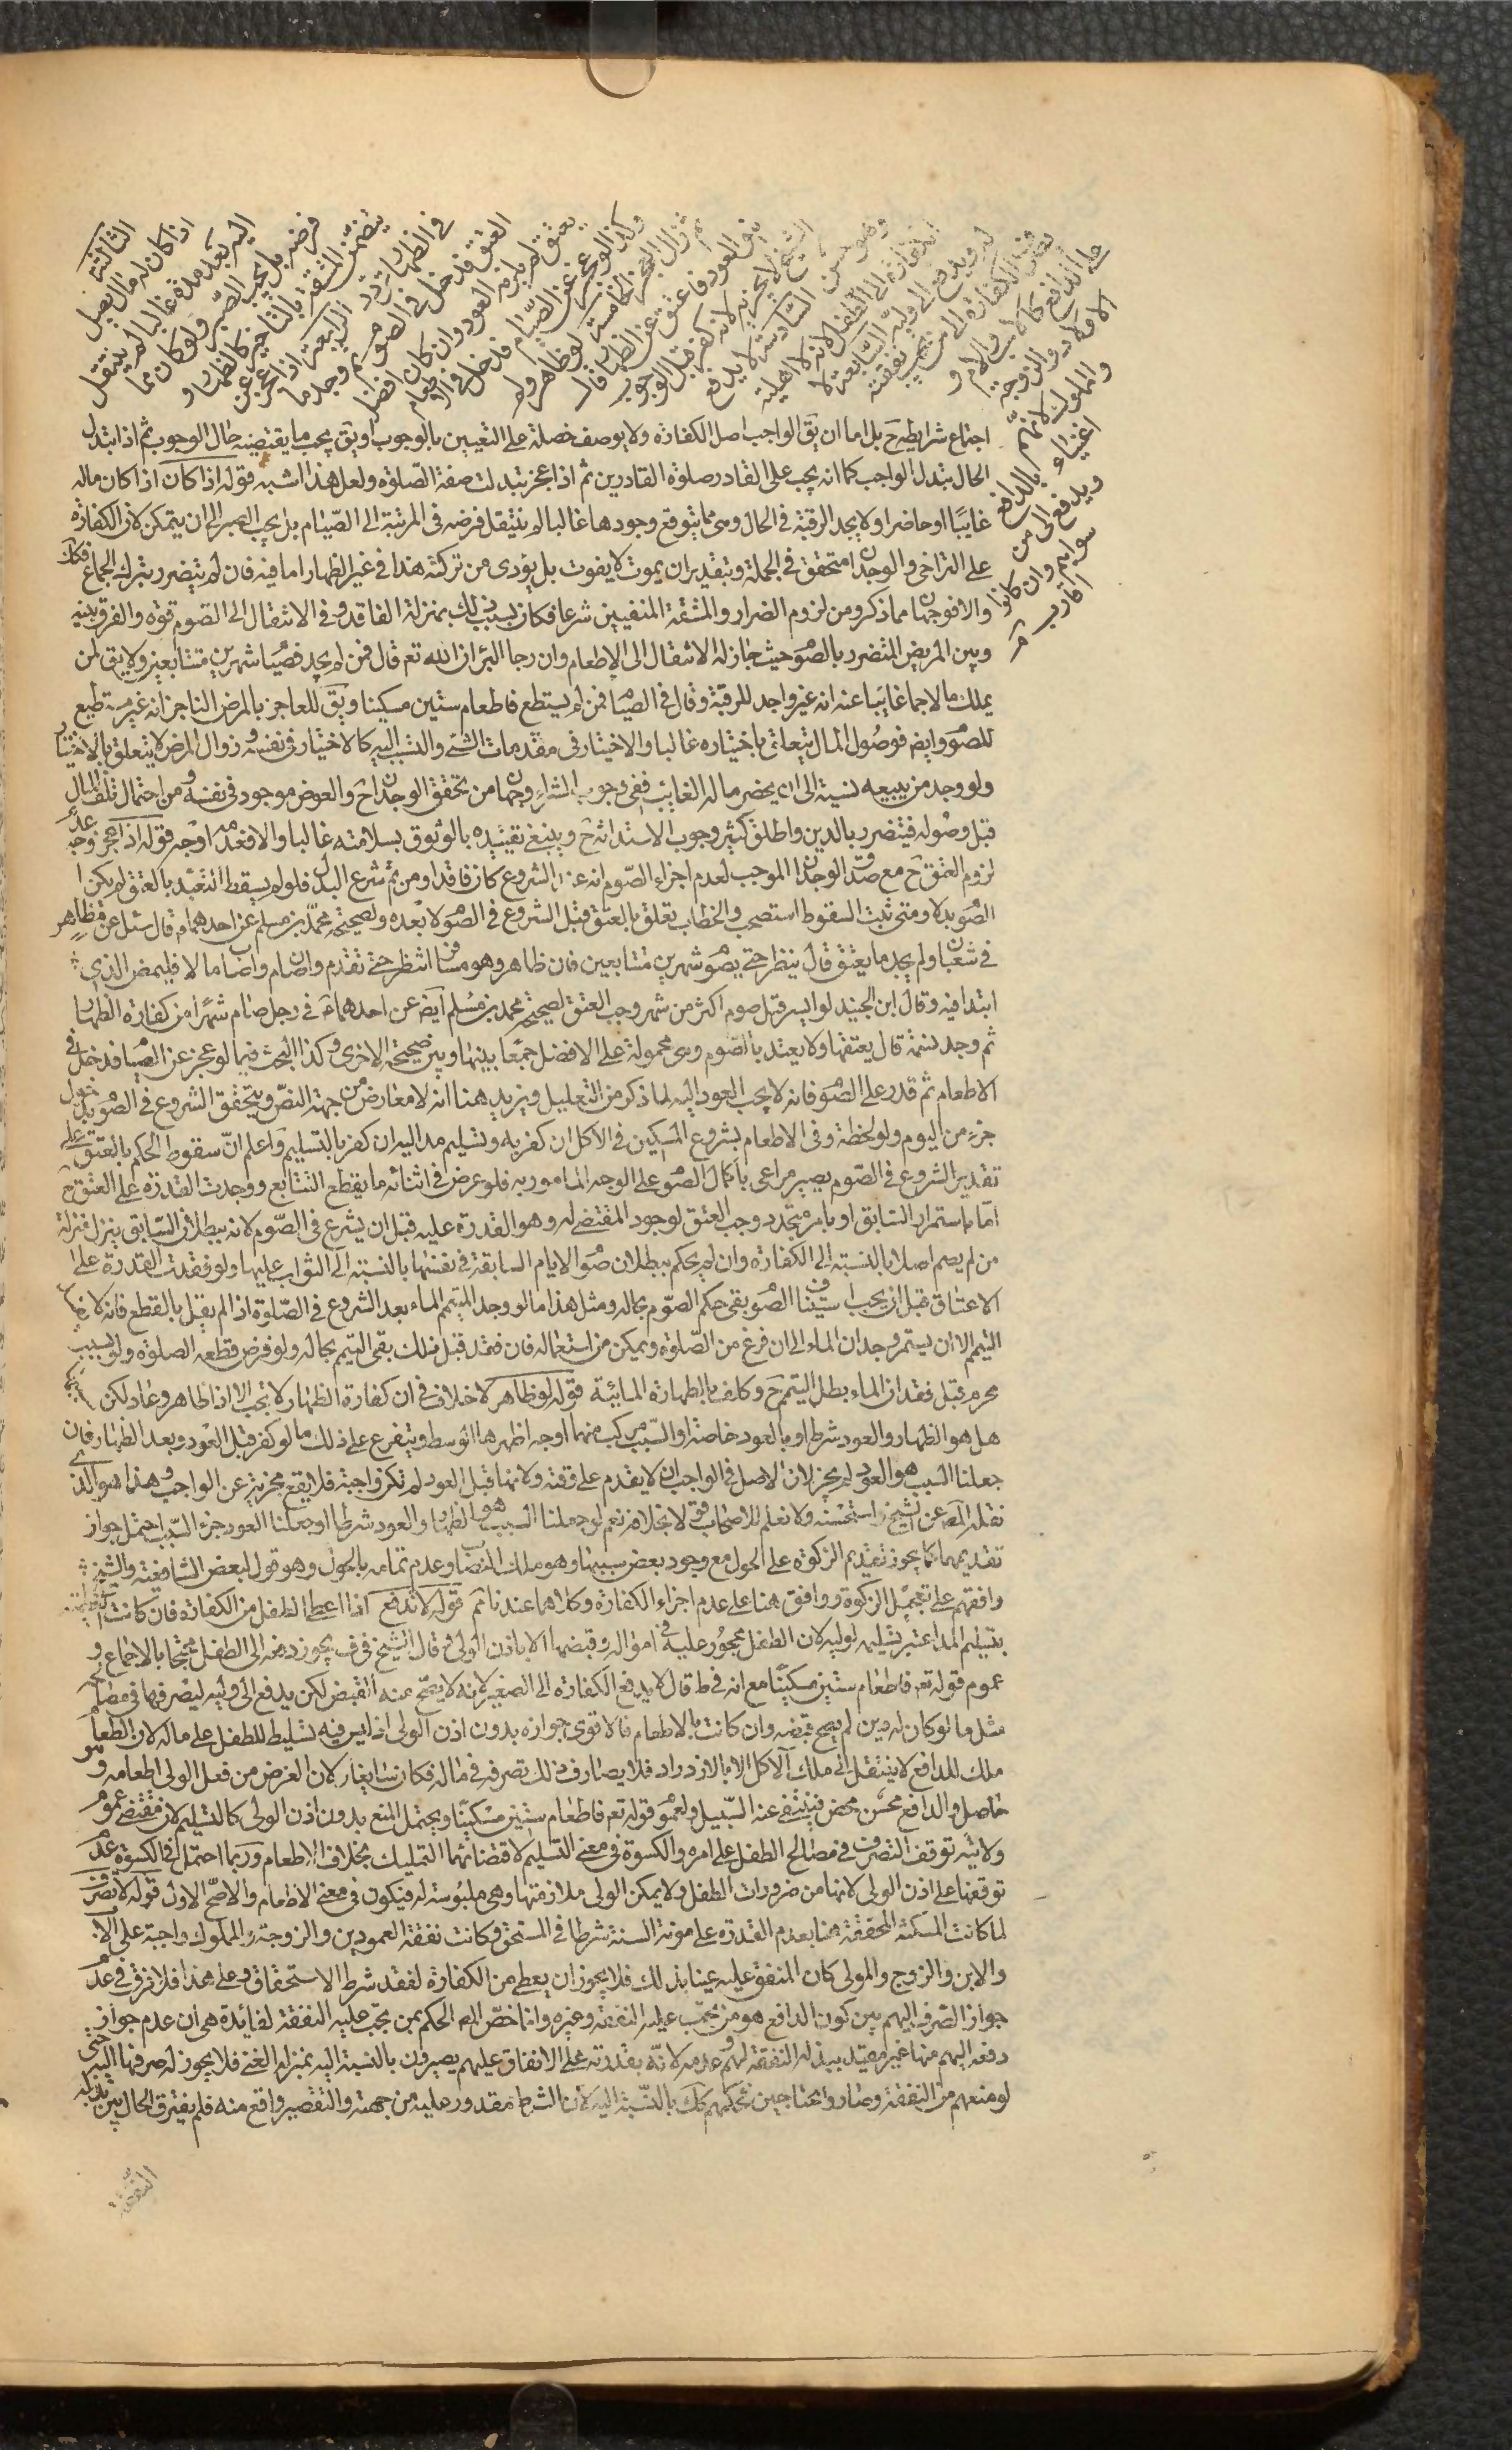 الثالثة
اذا كان له مال يصل
اليه بعد مدة غالبا لم ينتقل
فرضه بل يجب الصبر ولو كان مما
يتضمن المشقة بالتأخير كالظهار و
في الظهار تردد الرابعة اذا عجز عن
العتق فدخل في الصوم ثم وجد ما
يعتق لم يلزمه العود وان كان افضل
وكذا لو عجز عن الصيام فدخل في الاطعام
ثم زال العجز الخامسة لو ظاهر ولم
ينو العود فاعتق عن الظهار قال
الشيخ لا يجزيه لانه كفر قبل الوجوب
وهو حسن السادسة لا يدفع
الكفارة الى الطفل لانه لا اهلية
له ويدفع الى وليه السابعة لا
تصرف الكفارة الى من تجب نفقته
على الدافع كالاب والام و
الاولاد والزوجة
والمملوك لانهم
اغنياء بالدافع
ويدفع الى من
سواهم وان كانوا
اقارب
اجتماع شرايطه ح بل اما ان يق الواجب اصل الكفارة ولا يوصف خصلة على التعيين بالوجوب او يق يجب ما يقتضيه حال الوجوب ثم اذا تبدل
الحال تبدل الواجب كما انه يجب على القادر صلوة القادرين ثم اذا عجز تبدلت صفة الصلوة ولعل هذا اشبه قوله اذا كان اذا كان ماله
غايبا او حاضرا ولا يجد الرقبة في الحال وهى مما يتوقع وجودها غالبا لم ينتقل فرضه في المرتبة الى الصيام بل يجب الصبر الى ان يتمكن لان الكفارة
على التراخي والوجدان متحقق في الجملة وبتقدير ان يموت لا يفوت بل يؤدى من تركته هذا في غير الظهار اما فيه فان لم يتضرر بترك الجماع فكك
والا فوجهان مما ذكر ومن لزوم الضرار والمشقة المنفيين شرعا فكان بسبب ذلك بمنزلة الفاقد وفي الانتقال الى الصوم قوة والفرق بينه
وبين المريض المتضرر بالصوم حيث جاز له الانتقال الى الاطعام وان رجا البرء ان الله تعم قال فمن لم يجد فصيام شهرين متتابعين ولا يق لمن
يملك مالا جما غايبا عنه انه غير واجد للرقبة وقال في الصيام فمن لم يستطع فاطعام ستين مسكينا ويق للعاجز بالمرض الناجز انه غير مستطيع
للصوم وايضم فوصول المال يتعلق باختياره غالبا والاختيار في مقدمات الشئ والتسبب اليه كالاختيار في نفسه وزوال المرض لا يتعلق بالاختيار
ولو وجد من يبيعه نسية الى ان يحضر ماله الغايب ففي وجوب الشراء وجهان من تحقق الوجدان ح والعوض موجود في نفسه ومن احتمال تلف المال
قبل وصوله فيتضرر بالدين واطلق كثير وجوب الاستدانة ح وينبغي تقييده بالوثوق بسلامته غالبا والا فعدمه اوجه قوله اذا عجز وجه عدم
لزوم العتق ح مع صدق الوجدان الموجب لعدم اجزاء الصوم انه عند الشروع كان فاقدا ومن ثم شرع البدل فلو لم يسقط التعبد بالعتق لم يكن
الصوم بدلا ومتى ثبت السقوط استصحب والخطاب تعلق بالعتق قبل الشروع في الصوم لا بعده ولصحيحة محمد بن مسلم عن احدهما ع قال سئل عن مظاهر
في شعبان ولم يجد ما يعتق قال ينتظر حتى يصوم شهرين متتابعين فان ظاهر وهو مسافر انتظر حتى يقدم وان صام واصاب مالا فليمض الذى
ابتدا فيه وقال ابن الجنيد لو ايسر قبل صوم اكثر من شهر وجب العتق لصحيحة محمد بن مسلم ايضم عن احدهما ع في رجل صام شهرا من كفارة الظهار
ثم وجد نسمة قال يعتقها ولا يعتد بالصوم وهى محمولة على الافضل جمعا بينها وبين صحيحته الاخرى وكذا البحث فيما لو عجز عن الصيام فدخل في
الاطعام ثم قدر على الصوم فانه لا يجب العود اليه لما ذكر من التعليل ويزيد هنا انه لا معارض من جهة النص ويتحقق الشروع في الصوم بدخول
جزء من اليوم ولو لحظة وفي الاطعام بشروع المسكين في الاكل ان كفر به وتسليم مد اليه ان كفر بالتسليم واعلم ان سقوط الحكم بالعتق على
تقدير الشروع في الصوم يصير مراعى باكمال الصوم على الوجه المامور به فلو عرض في اثنائه ما يقطع التتابع ووجدت القدرة على العتق ح
اما باستمرار السابق او بامر متجدد وجب العتق لوجود المقتضى له وهو القدرة عليه قبل ان يشرع في الصوم لانه ببطلان السابق ينزل منزلة
من لم يصم اصلا بالنسبة الى الكفارة وان لم يحكم ببطلان صوم الايام السابقة في نفسها بالنسبة الى الثواب عليها ولو فقدت القدرة على
الاعتاق قبل ان يجب استيناف الصوم بقى حكم الصوم بحاله ومثل هذا ما لو وجد المتيمم الماء بعد الشروع في الصلوة اذا لم يقل بالقطع فانه لا
التيمم الا ان يستمر وجدان الماء الى ان فرغ من الصلوة ويمكن من استعماله فان فقد قبل ذلك بقى التيمم بحاله ولو فرض قطعه الصلوة ولو بسبب
محرم قبل فقدان الماء بطل التيمم ح وكلف بالطهارة المائية قوله لو ظاهر لا خلاف في ان كفارة الظهار لا تجب الا اذا ظاهر وعاد لكن
هل هو الظهار والعود شرط او بالعود خاصة او السبب مركب منهما اوجه اظهرها الوسط ويتفرع على ذلك ما لو كفر قبل العود وبعد الظهار فان
جعلنا السبب هو العود لم يجز لان الاصل في الواجب ان لا يقدم على وقته ولانها قبل العود لم تكن واجبة فلا يقع مجزية عن الواجب وهذا هو الذى
نقله المصم عن الشيخ واستحسنه ولا نعلم للاصحاب قولا بخلافه نعم لو جعلنا السبب هو الظهار والعود شرطا او جعلنا العود جزء السبب احتمل جواز
تقديمها كما يجوز تقديم الزكوة على الحول مع وجود بعض سببها وهو ملك النصاب وعدم تمامه بالحول وهو قول لبعض الشافعية والشيخ
وافقهم على تعجيل الزكوة ووافق هنا على عدم اجزاء الكفارة وكلاهما عندنا ثم قوله لا تدفع اذا اعطى الطفل من الكفارة فان كانت
بتسليم المد اعتبر تسليمه لوليه لان الطفل محجور عليه في امواله وقبضها الا باذن الولى وقال الشيخ في ف يجوز دفعه الى الطفل محتجا بالاجماع و
عموم قوله تعم فاطعام ستين مسكينا مع انه في ط قال لا يدفع الكفارة الى الصغير لانه لا يصح منه القبض لكن يدفع الى وليه ليصرفها في مصالحه
مثل ما لو كان له دين لم يصح قبضه وان كانت بالاطعام فالاقوى جوازه بدون اذن الولى اذ ليس فيه تسليط للطفل على ماله لان الطعام
ملك للدافع لا ينتقل الى ملك الآكل الا بالازدراد فلا يصادف ذلك تصرفه في ماله فكان سايغا ولان الغرض من فعل الولى اطعامه وهو
حاصل والدافع محسن محض فينتفى عنه السبيل ولعموم قوله تعم فاطعام ستين مسكينا ويحتمل المنع بدون اذن الولى كالتسليم لان مقتضى عموم
ولايته توقف التصرف في مصالح الطفل على امره والكسوة في معنى التسليم لاقتضائها التمليك بخلاف الاطعام وربما احتمل في الكسوة عدم
توقفها على اذن الولى لانها من ضرورات الطفل ولا يمكن الولى ملازمتها وهى ملبوسة له فيكون في معنى الاطعام والاصح الاول قوله لا تصرف
لما كانت المسكنة المحققة هنا بعدم القدرة على مؤنة السنة شرطا في المستحق وكانت نفقة العمودين والزوجة والمملوك واجبة على الاب
والابن والزوج والمولى كان المنفق عليه غنيا بذلك فلا يجوز ان يعطى من الكفارة لفقد شرط الاستحقاق وعلى هذا فلا فرق في عدم
جواز الصرف اليهم بين كون الدافع هو من تجب عليه النفقة وغيره وانما خص المصم الحكم بمن تجب عليه النفقة لفائدة هى ان عدم جواز
دفعه اليهم منها غير مقيد ببذله النفقة لهم وعدمه لانه بقدرته على الانفاق عليهم يصيرون بالنسبة اليه بمنزلة الغنى فلا يجوز له صرفها اليهم حتى
لو منعهم من النفقة وصاروا محتاجين فحكمهم كك بالنسبة اليه لان الشرط مقدور عليه من جهته والتقصير واقع منه فلم يفترق الحال بين بذله
النفقة